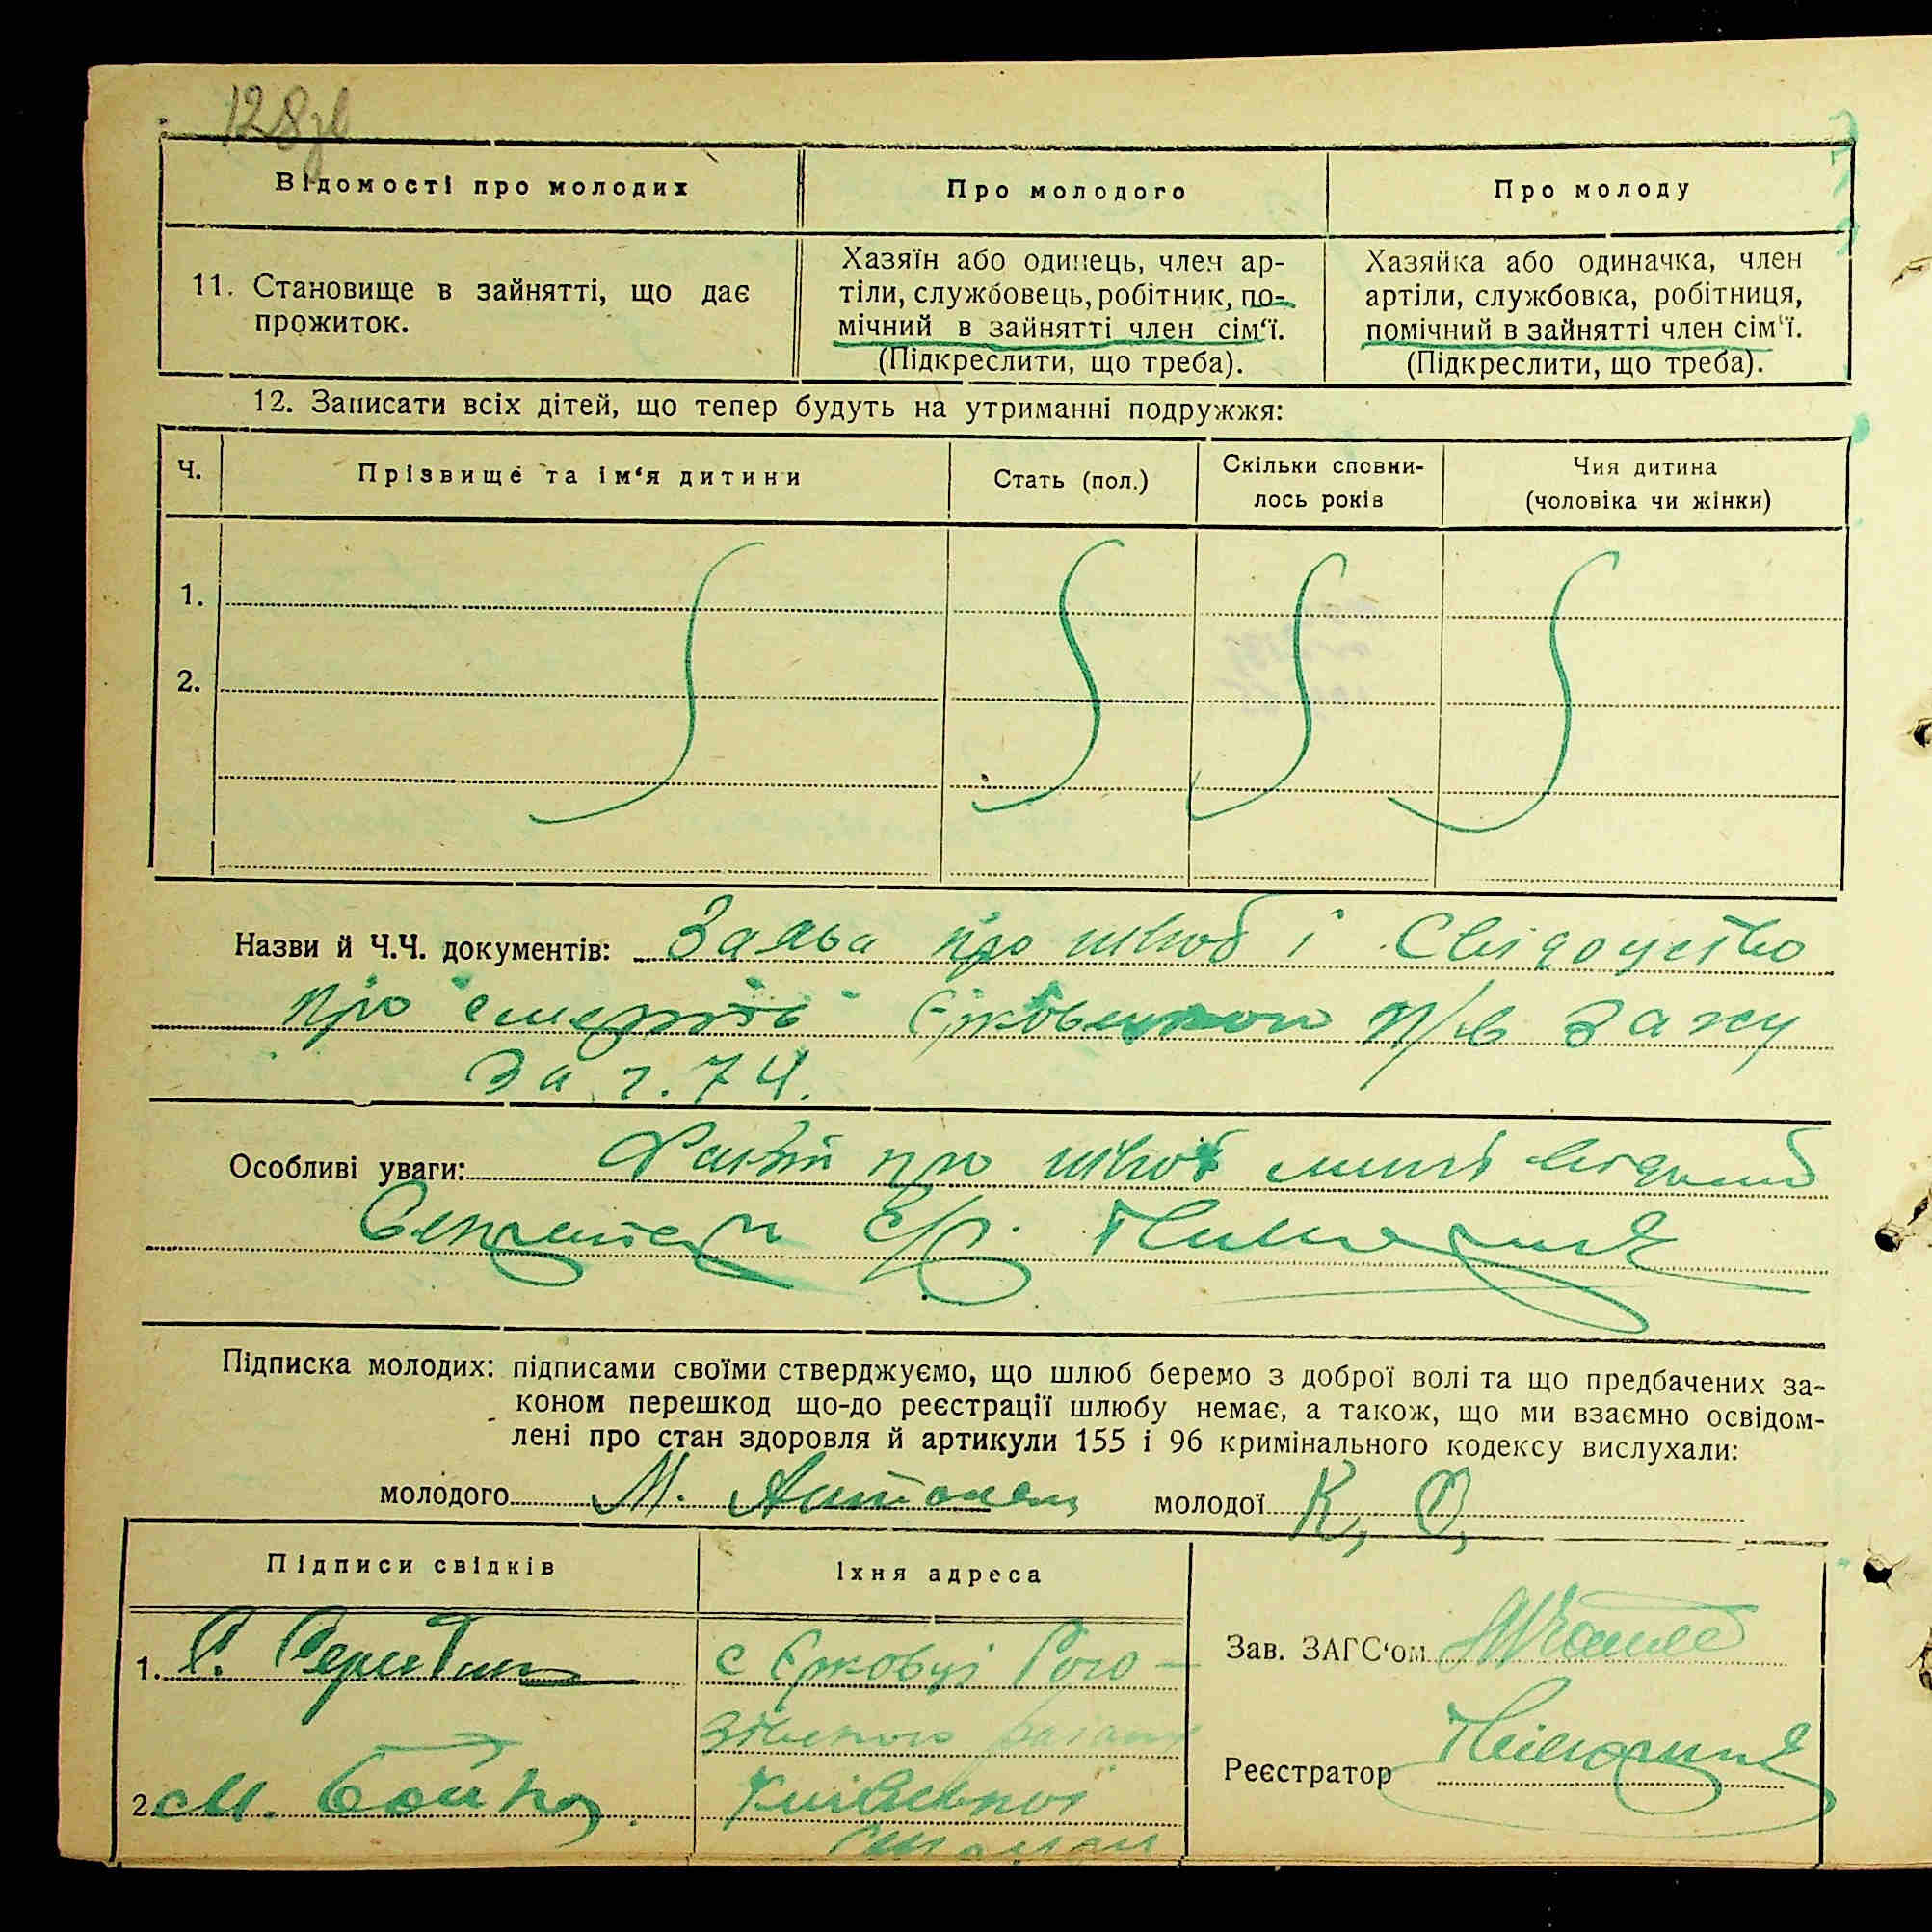 128зв
Відомості про молодих
Про молодого
Про молоду
11. Становище в зайнятті, що дає
прожиток.
Хазяїн або одинець, член ар-
тіли, службовець, робітник, по-
мічний в зайнятті член сім‘ї.
(Підкреслити, що треба).
Хазяйка або одиначка, член
артіли, службовка, робітниця,
помічний в зайнятті член сім‘ї.
(Підкреслити, що треба).
12. Записати всіх дітей, що тепер будуть на утриманні подружжя:
Ч.
Прізвище та ім‘я дитини
Стать (пол.)
Скільки сповни-
лось років
Чия дитина
(чоловіка чи жінки)
1.
2.
Назви й Ч.Ч. документів: Заява про шлюб і Свідоцтво
про смерть Єрковецкого р/в Загсу
За ч. 74.
Особливі уваги: про шлюб
с/р.
Підписка молодих: підписами своїми стверджуємо, що шлюб беремо з доброї волі та що предбачених за-
коном перешкод що-до реєстрації шлюбу немає, а також, що ми взаємно освідом-
лені про стан здоровля й артикули 155 і 96 кримінального кодексу вислухали:
молодого М. Антонець молодої К, О,
Підписи свідків
Їхня адреса
1.
с Єрковці Рого-
зівського району
2. М. Бойко
Київської
Зав. ЗАГС‘ом
Реєстратор